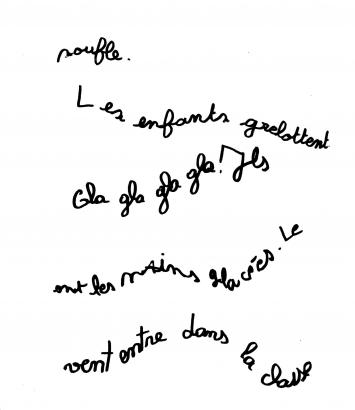 soufle.
Les enfants grelottent
Gla gla gla gla! Ils
ont les mains glacées. Le
vent entre dans la classe